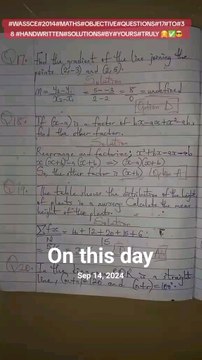 #WASSCE#2014#MATHS#OBJECTIVE#QUESTIONS#17#TO#3
6 #HANDWRITTEN#SOLUTIONS#BY#YOURS#TRULY
Q17. Find the gradient of the line joining the
points (2, -3) and (2, 5).
Solution
m = y2-y1 / x2-x1 = 5--3 / 2-2 = 8/0 = undefined
Option
Q18. If (x-a) is a factor of bx-ax+x²-ab,
find the other factor.
Solution
Rearrange and factorise; x²+bx-ax-ab
x(x+b)-a(x+b) ⇒ (x-a)(x+b)
So the other factor is (x+b) (Option
Q19. The table shows the distribution of the height
of plants in a Calculate the mean
height of the plants.
Solution
Σfx / N = 4+12+20+15+6
15
On this day
Sep 14, 2024
Q20. In the PQR is a straight
line, (m+n) = 120° and (n+r) = 100°.